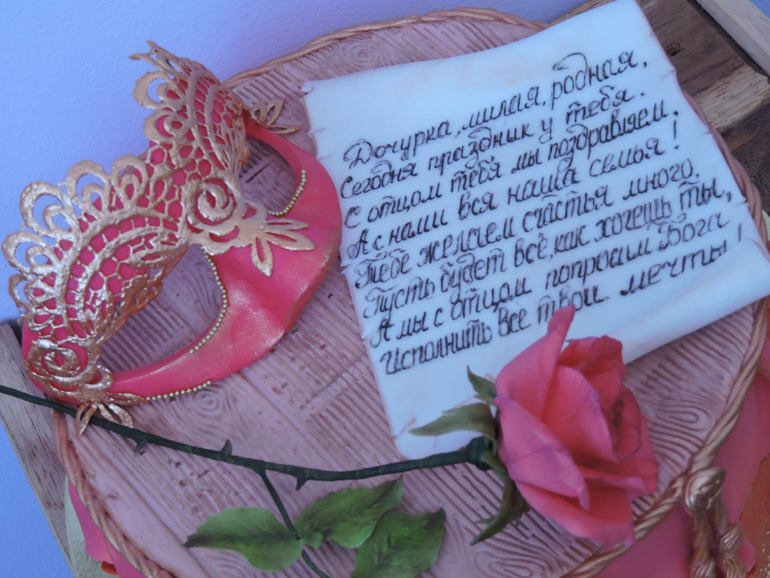 Дочурка, милая, родная,
Сегодня праздник у тебя.
С отцом тебя мы поздравляем,
А с нами вся наша семья!
Тебе желаем счастья много.
Пусть будет всё, как хочешь ты,
А мы с отцом попросим Бога
Исполнить все твои мечты!